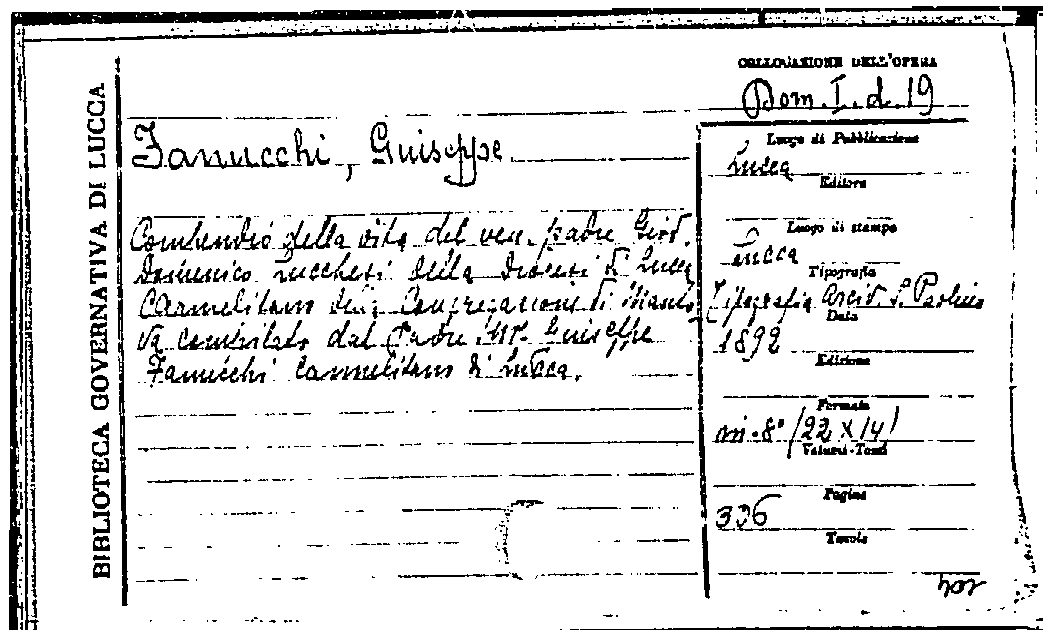 BIBLIOTECA GOVERNATIVA DI LUCCA
COLLOCAZIONE DELL'OPERA
Dom. I. d. 19
Fanucchi, Guiseppe
Compendio della vita del ven. padre Giov.
Domenico Lucchesi della diocesi di Lucca
Carmelitano della Congregazione di Manto
va compilato dal Padre Mo. Guiseppe
Fanucchi Carmelitano di Lucca.
Luogo di Pubblicazione
Lucca
Editore
Luogo di stampa
Lucca
Tipografia
Tipografia Arciv. S. Paolino
Data
1892
Edizione
Formato
in-8° (22 X 14)
Volumi-Tomi
Pagine
336
Tavole